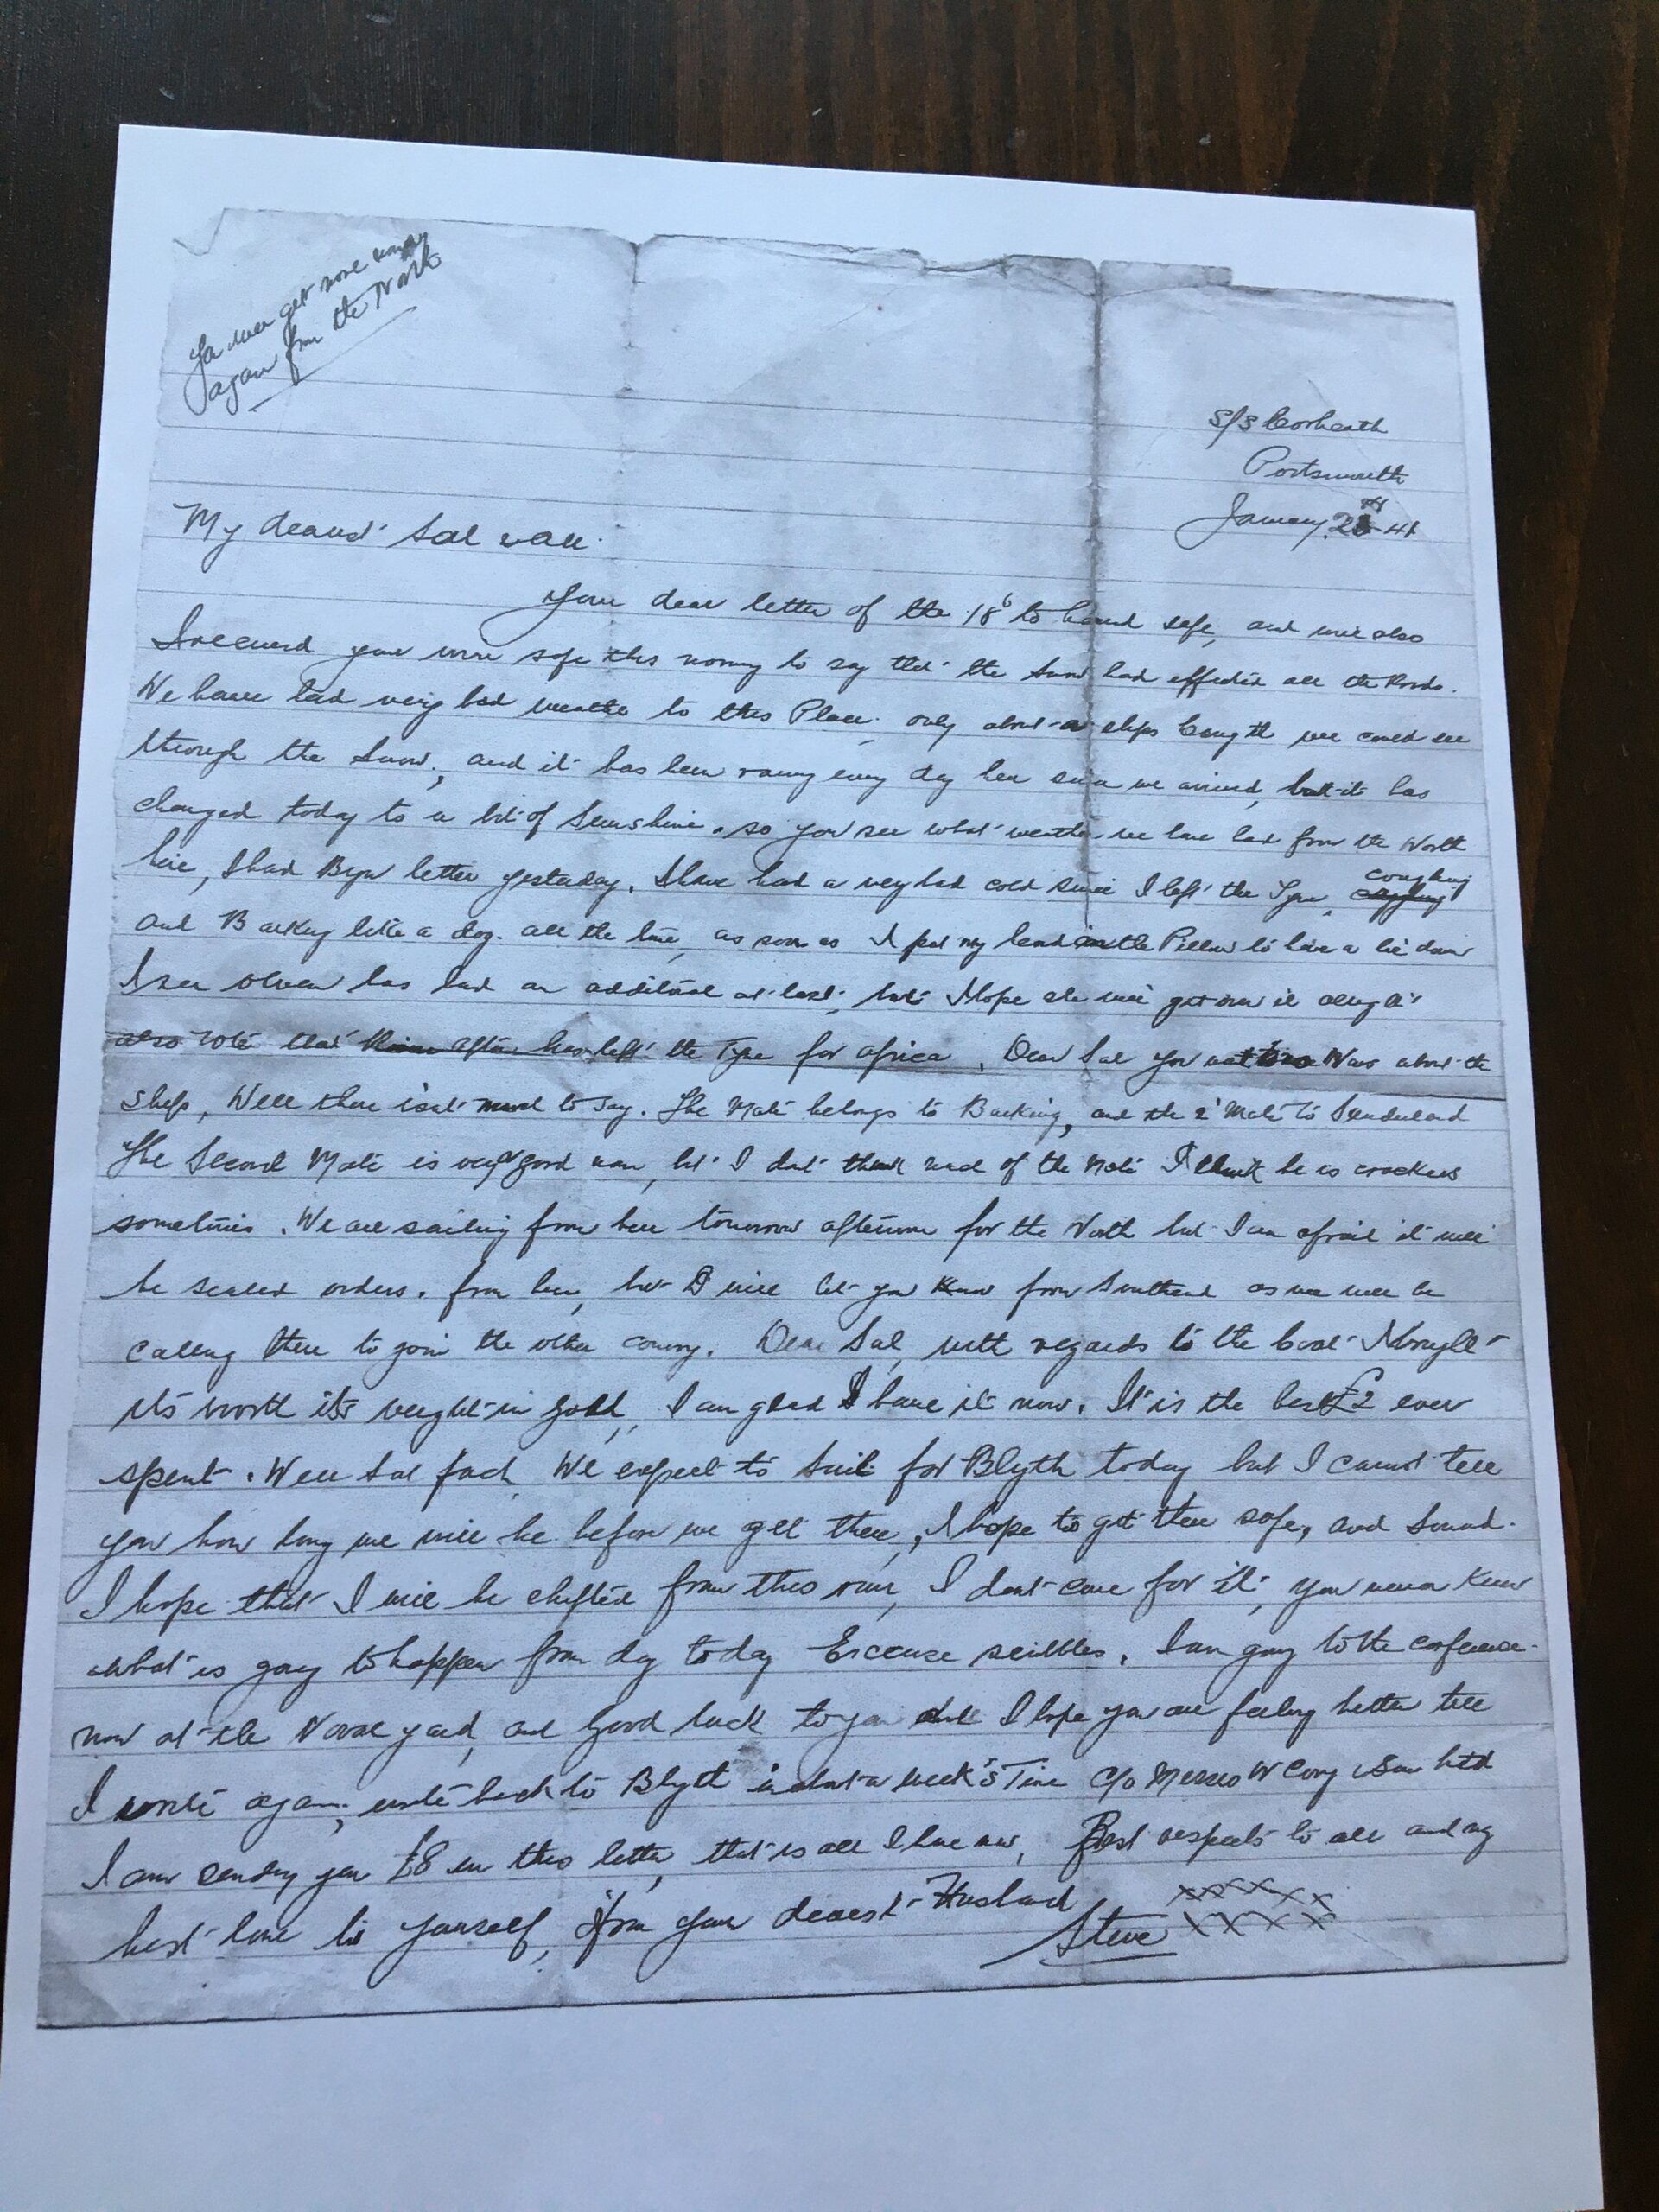 You will get more money
again from the North
S/S Corheath
Portsmouth
January 2 41
My dearest Sal & all
Your dear letter of the 18 to hand safe, and also
I received your wire safe this morning to say that the snow had effected all the Roads.
We have had very bad weather to this Place, only about a ships length we could see
through the snow, and it has been every day here since we arrived, but it has
changed today to a bit of Sunshine. so you see what weather we have had from the North
here, I had letter yesterday. I have had a very bad cold since I left the Tyne, coughing
and Barking like a dog. all the time, as soon as I put my head on the Pillow to have a lie down
I see Olwen has had an additional at last, but I Hope she will get over it alright
also note that has left the Tyne for Africa, Dear Sal you News about the
ship, Well there isnt much to say. The Mate belongs to Barking, and the 2 Mate to Sunderland
The Second Mate is very good man, but I dont think much of the Mate I think he is crackers
sometimes. We are sailing from here tomorrow afternoon for the North but I am afraid it will
be sealed orders. from here, but I will let you Know from Southend as we will be
calling there to join the other convoy. Dear Sal, with regards to the Coat I bought
its worth its weight in gold, I am glad I have it now. It is the best £2 ever
spent. Well Sal fach We expect to sail for Blyth today but I cannot tell
you how long we will be before we get there, I hope to get there safe, and sound.
I hope that I will be shifted from this run, I dont care for it, you never know
what is going to happen from day to day Excuse scribbles. I am going to the conference
now at the Naval yard, and Good luck to you I hope you are feeling better till
I write again, write back to Blyth in about a week's Time C/o Messrs W Cory & Son Ltd
I am sending you £8 in this letter, that is all I have now, Best respects to all and my
best love to yourself, from your dearest Husband
Steve xxxxxx
xxxxx